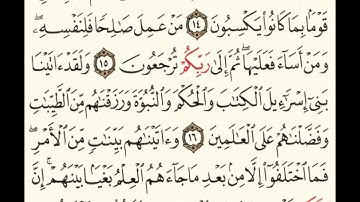 قَوْمًۢا بِمَا كَانُوا۟ يَكْسِبُونَ ١٤ مَنْ عَمِلَ صَـٰلِحًا فَلِنَفْسِهِۦ ۖ
وَمَنْ أَسَآءَ فَعَلَيْهَا ۖ ثُمَّ إِلَىٰ رَبِّكُمْ تُرْجَعُونَ ١٥ وَلَقَدْ ءَاتَيْنَا
بَنِىٓ إِسْرَٰٓءِيلَ ٱلْكِتَـٰبَ وَٱلْحُكْمَ وَٱلنُّبُوَّةَ وَرَزَقْنَـٰهُم مِّنَ ٱلطَّيِّبَـٰتِ
وَفَضَّلْنَـٰهُمْ عَلَى ٱلْعَـٰلَمِينَ ١٦ وَءَاتَيْنَـٰهُم بَيِّنَـٰتٍ مِّنَ ٱلْأَمْرِ ۖ
فَمَا ٱخْتَلَفُوٓا۟ إِلَّا مِنۢ بَعْدِ مَا جَآءَهُمُ ٱلْعِلْمُ بَغْيًۢا بَيْنَهُمْ ۚ إِنَّ